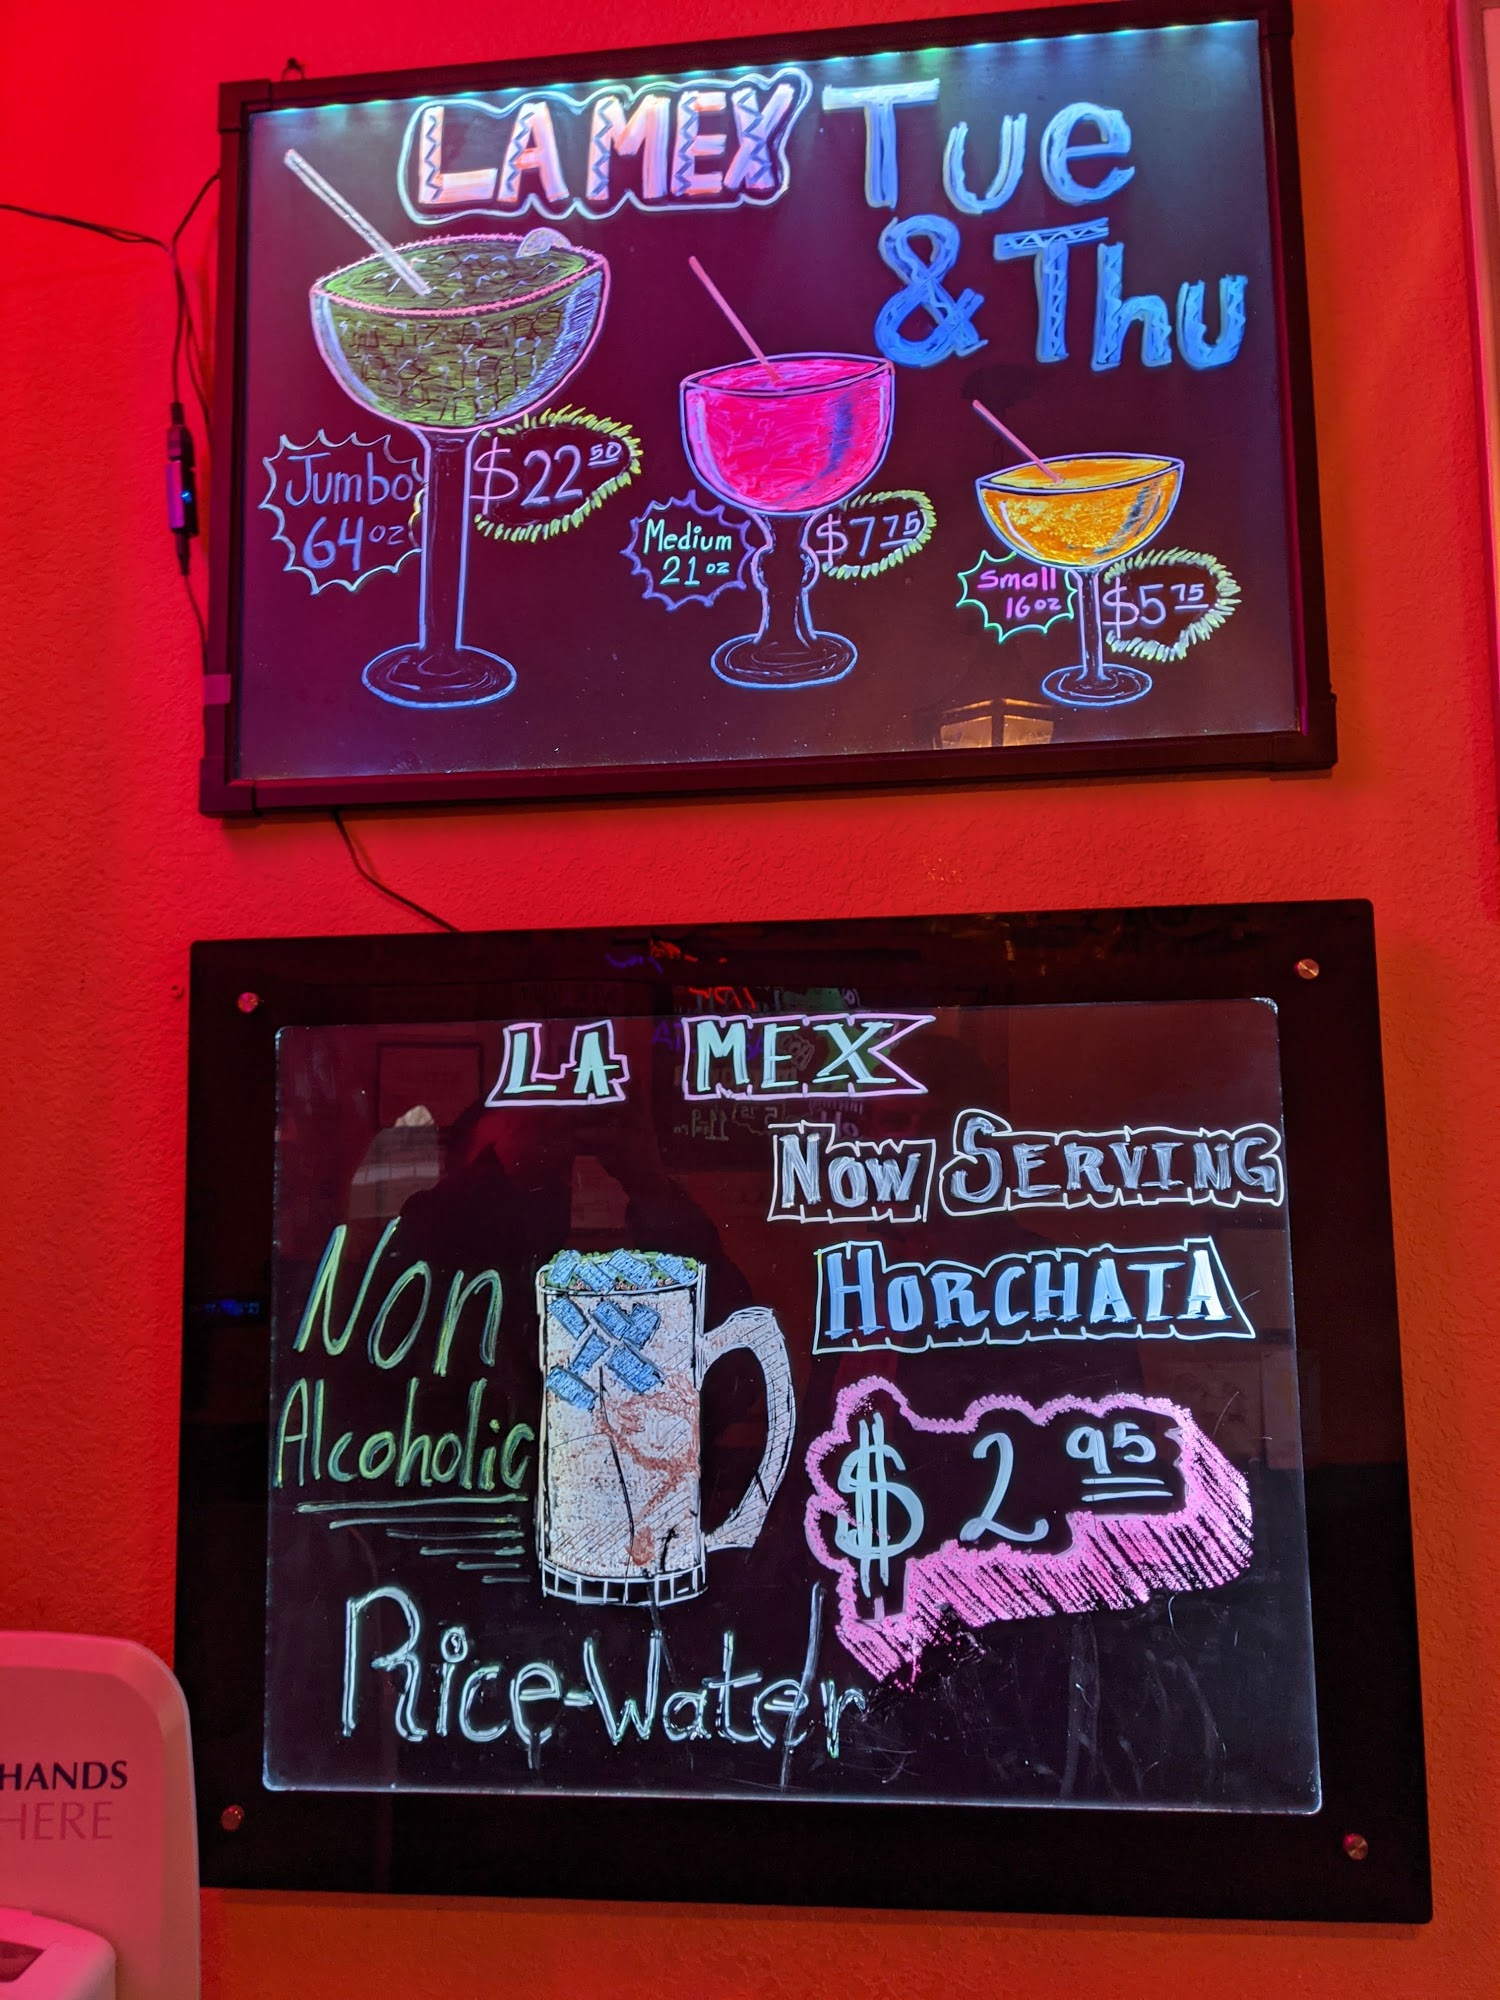 LA MEX Tue
& Thu
Jumbo
64 oz
$22 50
Medium
21 oz
$7 75
Small
16 oz
$5 75
LA MEX
Now Serving
Horchata
Non
Alcoholic
$2 95
Rice-Water
HANDS
HERE